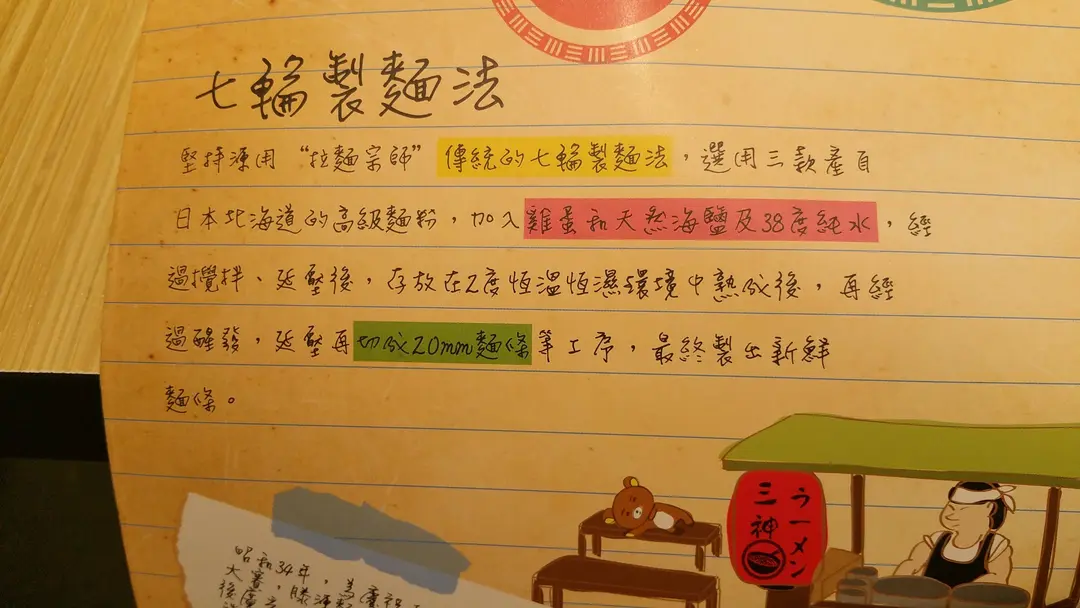 七輪製麵法
堅持源用“拉麵宗師”傳統的七輪製麵法，選用三款產自
日本北海道的高級麵粉，加入雞蛋和天然海鹽及38度純水，經
過攪拌、延壓後，存放在2度恆溫恆濕環境中熟成後，再經
過醒發，延壓再切成20mm麵條等工序，最終製出新鮮
麵條。
三神
らーメン
昭和34年，為慶祝
大賽，藤源
後廣